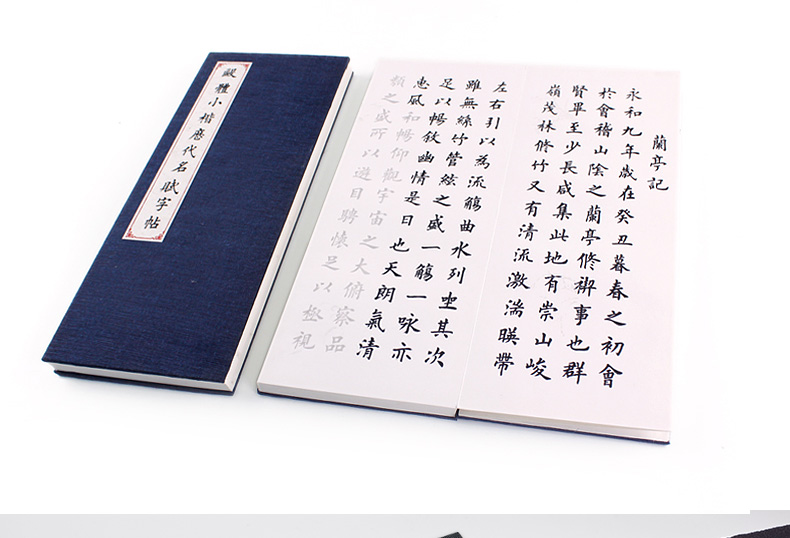 歐體小楷歷代名賦字帖
蘭亭記
永和九年歲在癸丑暮春之初會
於會稽山陰之蘭亭脩禊事也群
賢畢至少長咸集此地有崇山峻
嶺茂林脩竹又有清流激湍暎帶
左右引以為流觴曲水列坐其次
雖無絲竹管絃之盛一觴一詠亦
足以暢敘幽情是日也天朗氣清
惠風和暢仰觀宇宙之大俯察品
類之盛所以遊目騁懷足以極視